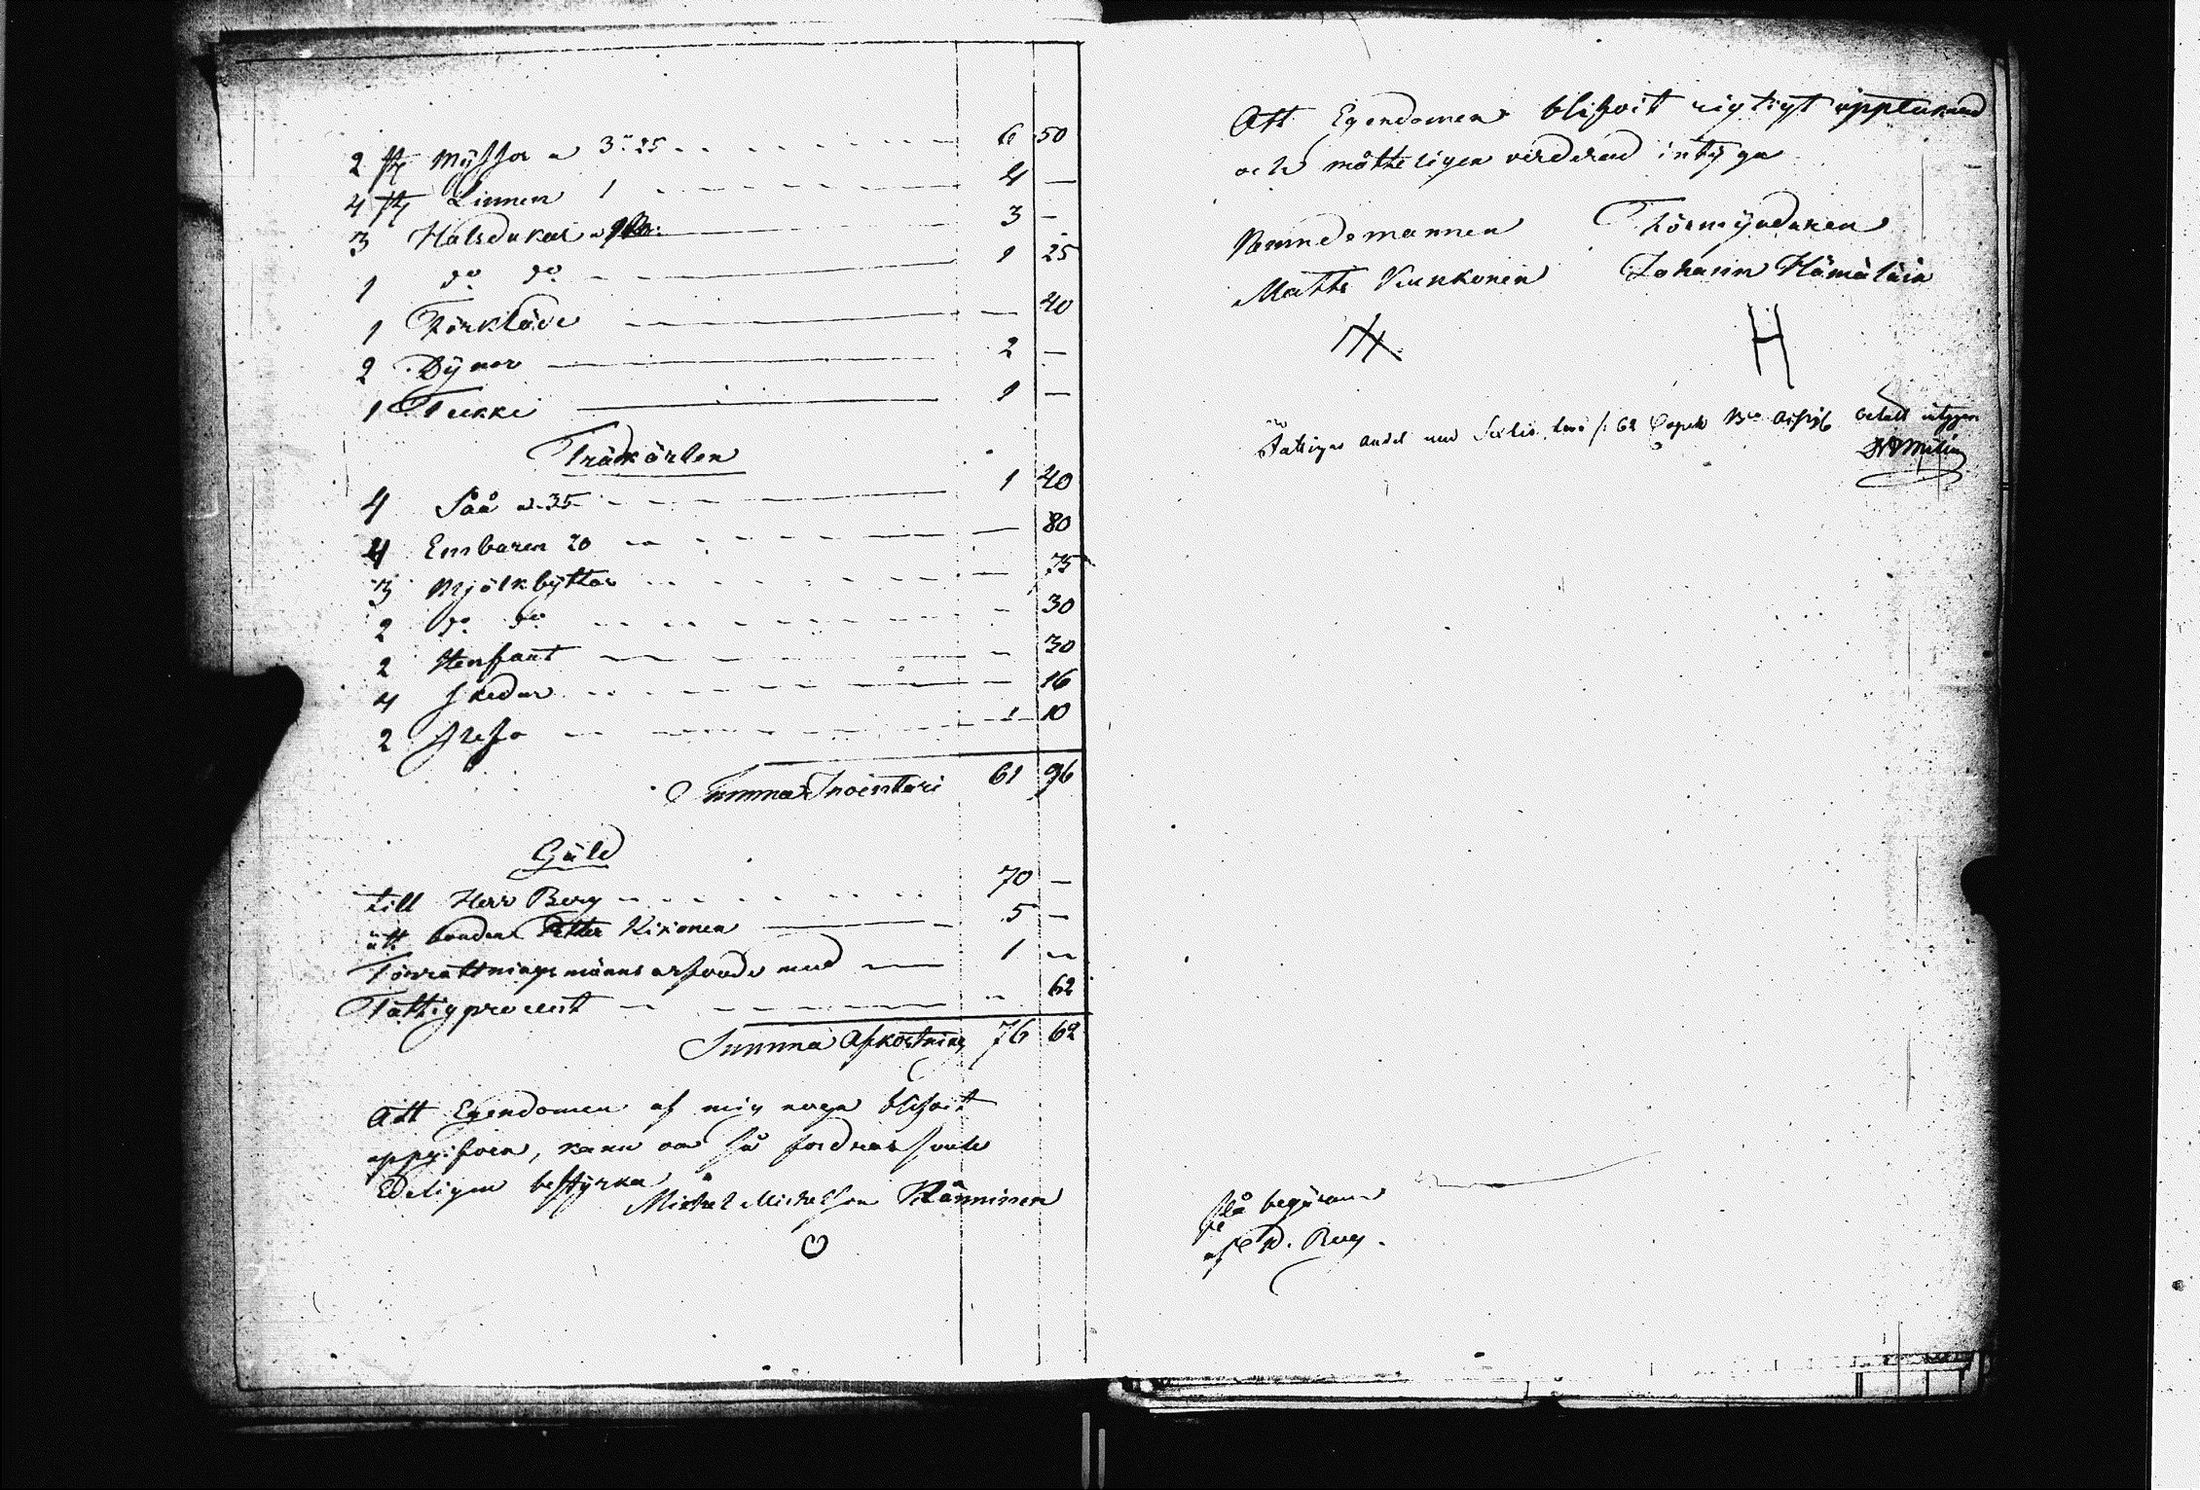 2 st Myssor a 3:25 6 50
4 st Linnen 1 4 —
3 Halsdukar a 3 —
1 do do 1 25
1 Förkläde — 40
2 Dynor 2 —
1 Teckki 1 —
Trädkärlen
4 Såå a 35 1 40
4 Embaren 20 — 80
3 Mjölkbyttor — 75
2 do do — 30
2 Stenfaat — 30
4 Skedar — 16
2 1 10
Summa Inventari 61 96
Gäld
till Herr Berg 70 —
ått bonden Petter Kixonen 5 —
Förrättningsmäns arfvode med 1 —
Fattigprocent — 62
Summa Afkortning 76 62
Att Egendomen af mig noga blifvit
uppgifven, kann om så fordras
Edeligen bestyrka
Michel Michelson Känninen
Att Egendomen blifvit rigtigt upptekned
och mötteligen verderad intyga
Nemndemannen Förmyndaren
Matts Kuukonen Johann Hämäläin
H
Fattiges andel med 62 Copek betalt intygar
på begäran
af D. Berg.